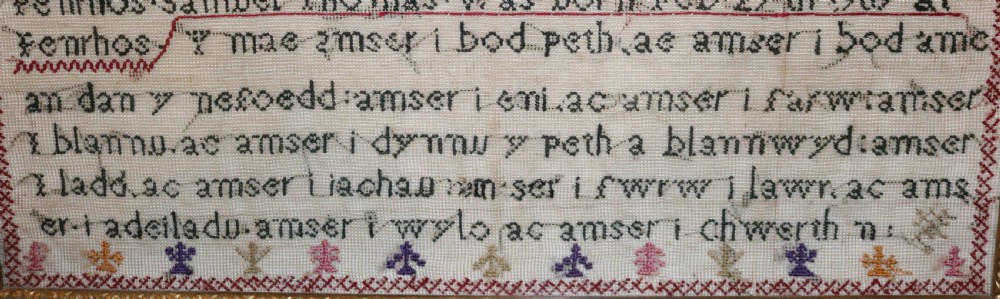 Penrhos. Samuel Thomas was born Feb at
Penrhos. Y mae amser i bod peth. ac amser i bod amc
an dan y nefoedd: amser i eni. ac amser i farw: amser
I blannu. ac amser i dynnu y peth a blannwyd: amser
I ladd. ac amser i iachau am ser i fwrw i lawr. ac ams
er. i adeiladu. amser i wylo ac amser i chwerth n: